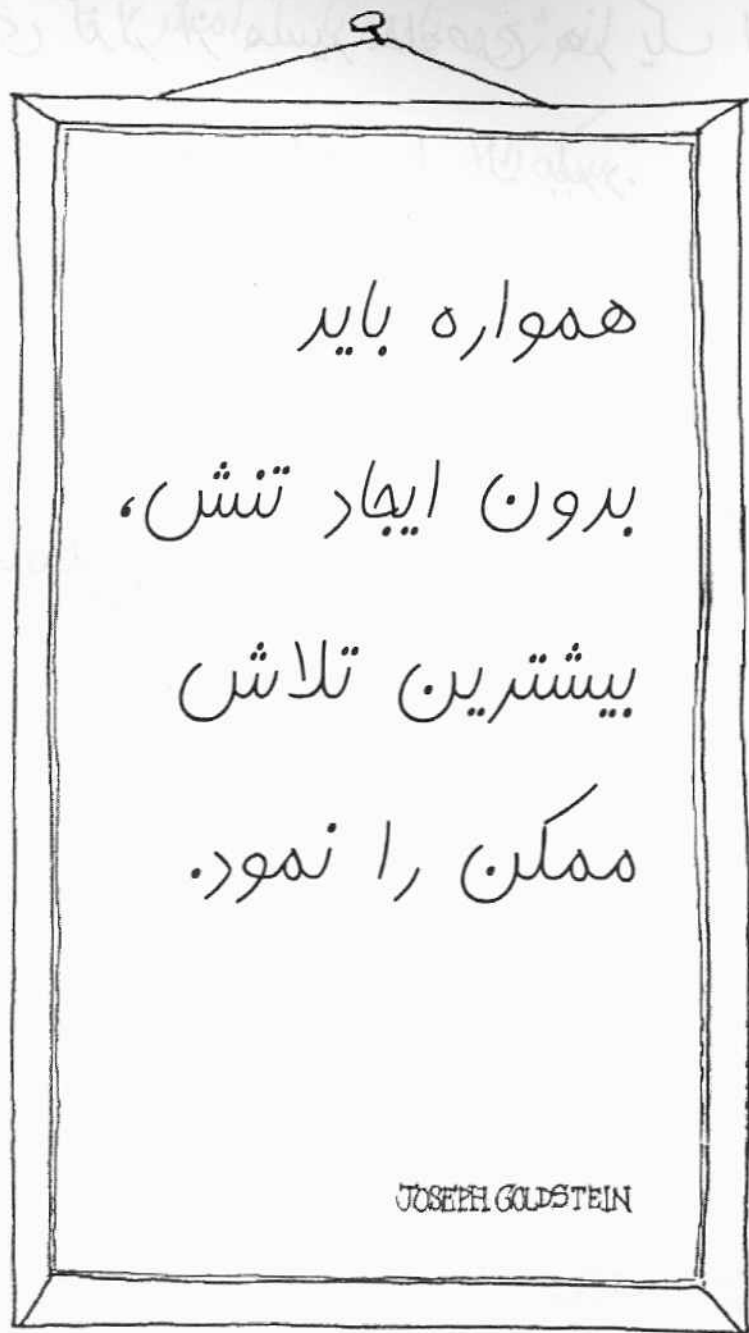 همواره باید
بدون ایجاد تنش،
بیشترین تلاش
ممکن را نمود.
JOSEPH GOLDSTEIN